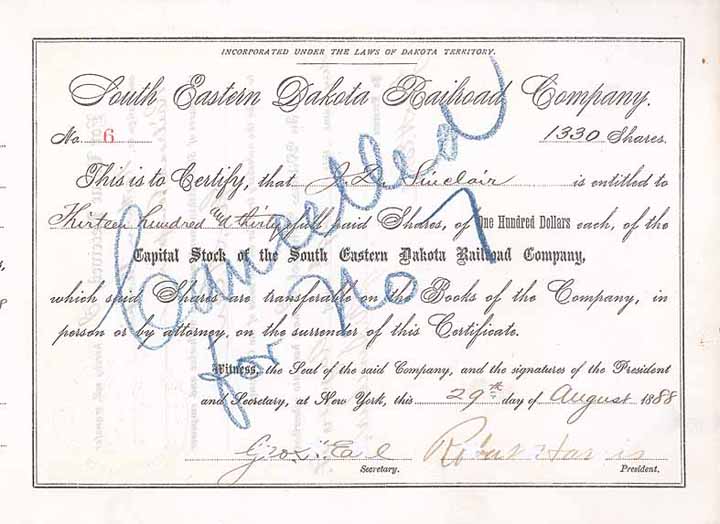 INCORPORATED UNDER THE LAWS OF DAKOTA TERRITORY.
South Eastern Dakota Railroad Company.
No. 6 1330 Shares.
This is to Certify, that J. D. Sinclair is entitled to
Thirteen hundred and thirty full paid Shares, of One Hundred Dollars each, of the
Capital Stock of the South Eastern Dakota Railroad Company,
which said Shares are transferable on the Books of the Company, in
person or by attorney, on the surrender of this Certificate.
Witness, the Seal of the said Company, and the signatures of the President
and Secretary, at New York, this 29th day of August 1888
Robert Harris
Secretary. President.
Cancelled
for No 7